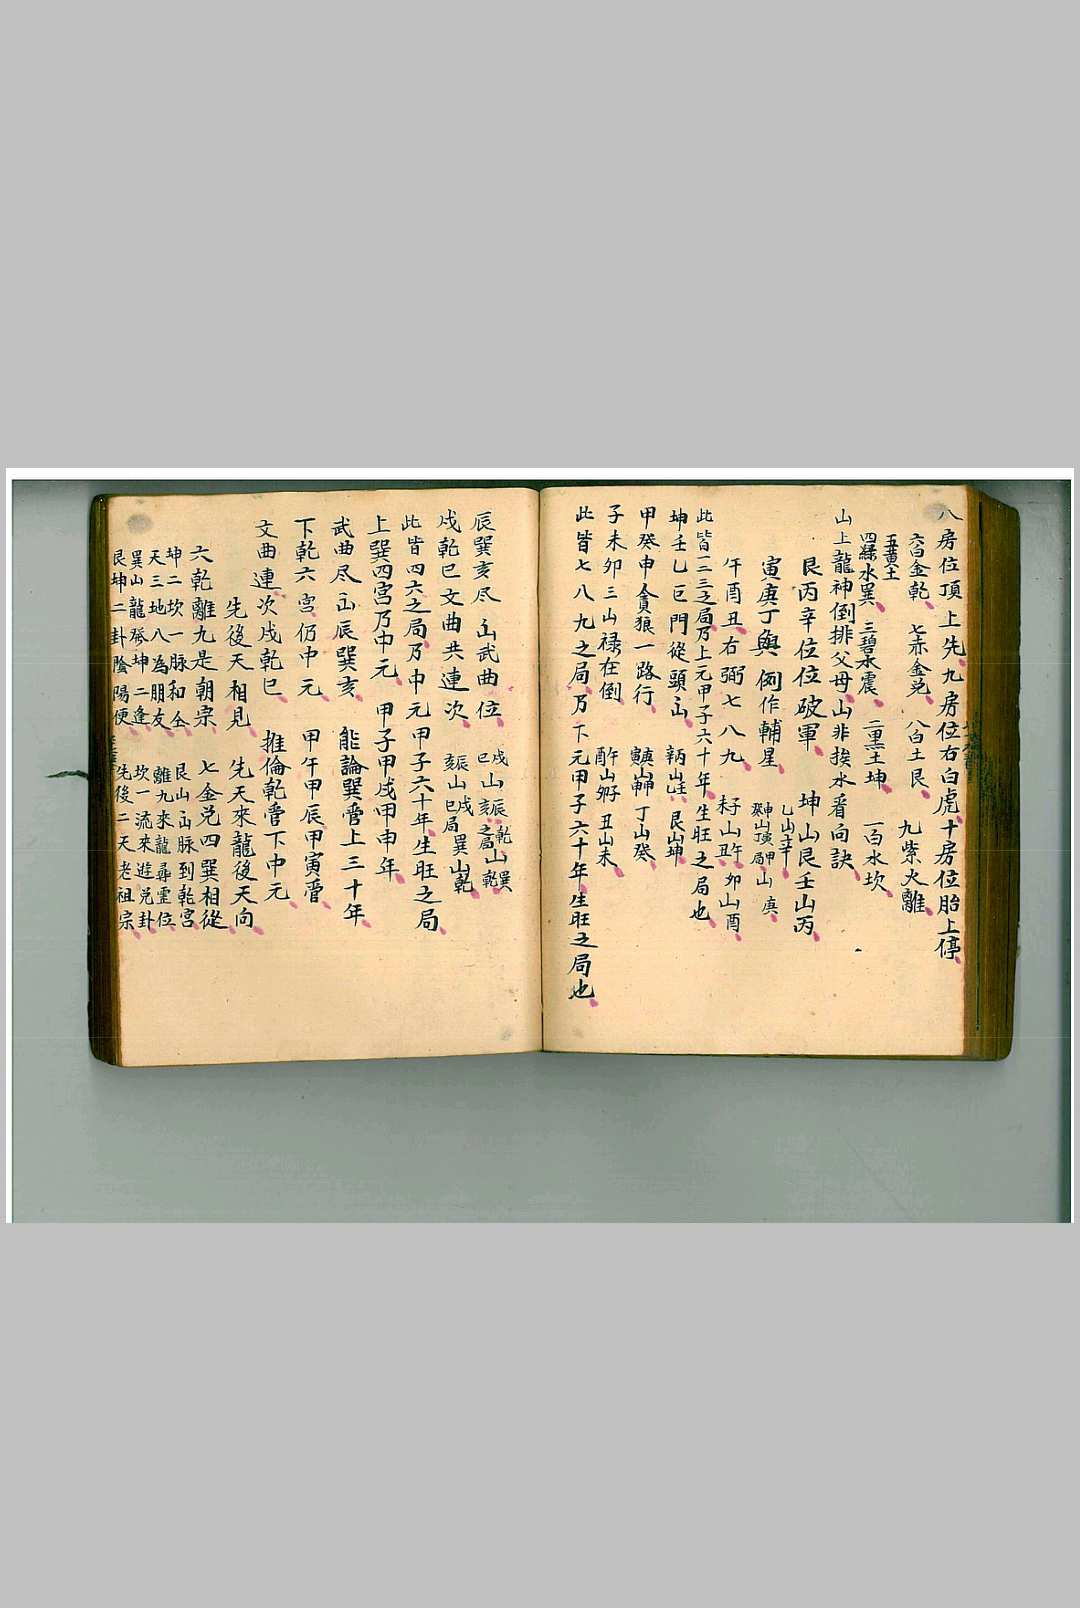 八房位頂上先九房位右白虎十房位胎上停
五黃土
六白金乾 七赤金兑 八白土艮 九紫火離
四綠水巽 三碧水震 二黑土坤 一白水坎
山上龍神倒排父母山非挨水看向訣
艮丙辛位位破軍 坤山艮壬山丙
乙山辛
寅庚丁與例作輔星 申山寅癸山丁局甲山庚
午酉丑右弼七八九 子山午未山丑卯山酉
此皆一二三之局乃上元甲子六十年生旺之局也
坤壬乙巨門從頭山 艮山坤
甲癸申貪狼一路行 丁山癸
子未卯三山禄在倒 丑山未
此皆七八九之局乃下元甲子六十年生旺之局也
辰巽亥尽山武曲位 戌山辰乾山巽巳山亥之局山乾
戌乾巳文曲共連次 辰山戌亥山巳局巽山乾
此皆四六之局乃中元甲子六十年生旺之局
上巽四宮乃中元 甲子甲戌甲申年
武曲尽山辰巽亥 能論巽管上三十年
下乾六宮仍中元 甲午甲辰甲寅管
文曲連次戌乾巳 推倫乾管下中元
先後天相見 先天來龍後天向
六乾離九是朝宗 七金兑四巽相從
坤二坎一脉和仝 艮山山脉到乾宮
天三地八為朋友 離九來龍尋靈位
巽山龍發坤二逢 坎一流來遊兑卦
艮坤二卦陰陽便 先後二天老祖宗